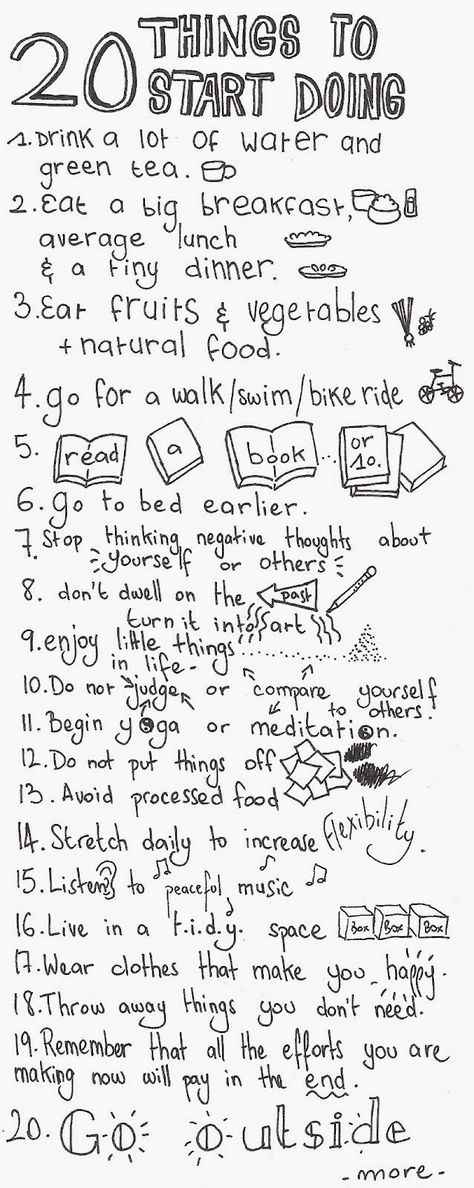 20 THINGS TO
START DOING
1. Drink a lot of water and
green tea.
2. Eat a big breakfast,
average lunch
& a tiny dinner.
3. Eat fruits & vegetables
+ natural food.
4. go for a walk/swim/bike ride
5. read a book ... or 10.
6. go to bed earlier.
7. Stop thinking negative thoughts about
yourself or others
8. don't dwell on the past
turn it into art
9. enjoy little things
in life -
10. Do not judge or compare yourself
to others.
11. Begin yoga or meditation.
12. Do not put things off
13. Avoid processed food
14. Stretch daily to increase flexibility.
15. Listen to peaceful music
16. Live in a t.i.d.y. space Box Box Box
17. Wear clothes that make you happy.
18. Throw away things you don't need.
19. Remember that all the efforts you are
making now will pay in the end.
20. Go outside
- more -